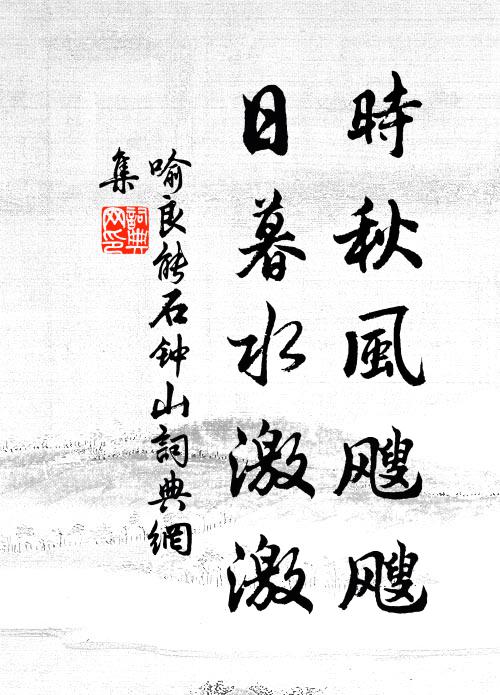 時秋風飕飕
日暮水激激
喻良能石钟山詞典網
集
詞典网印